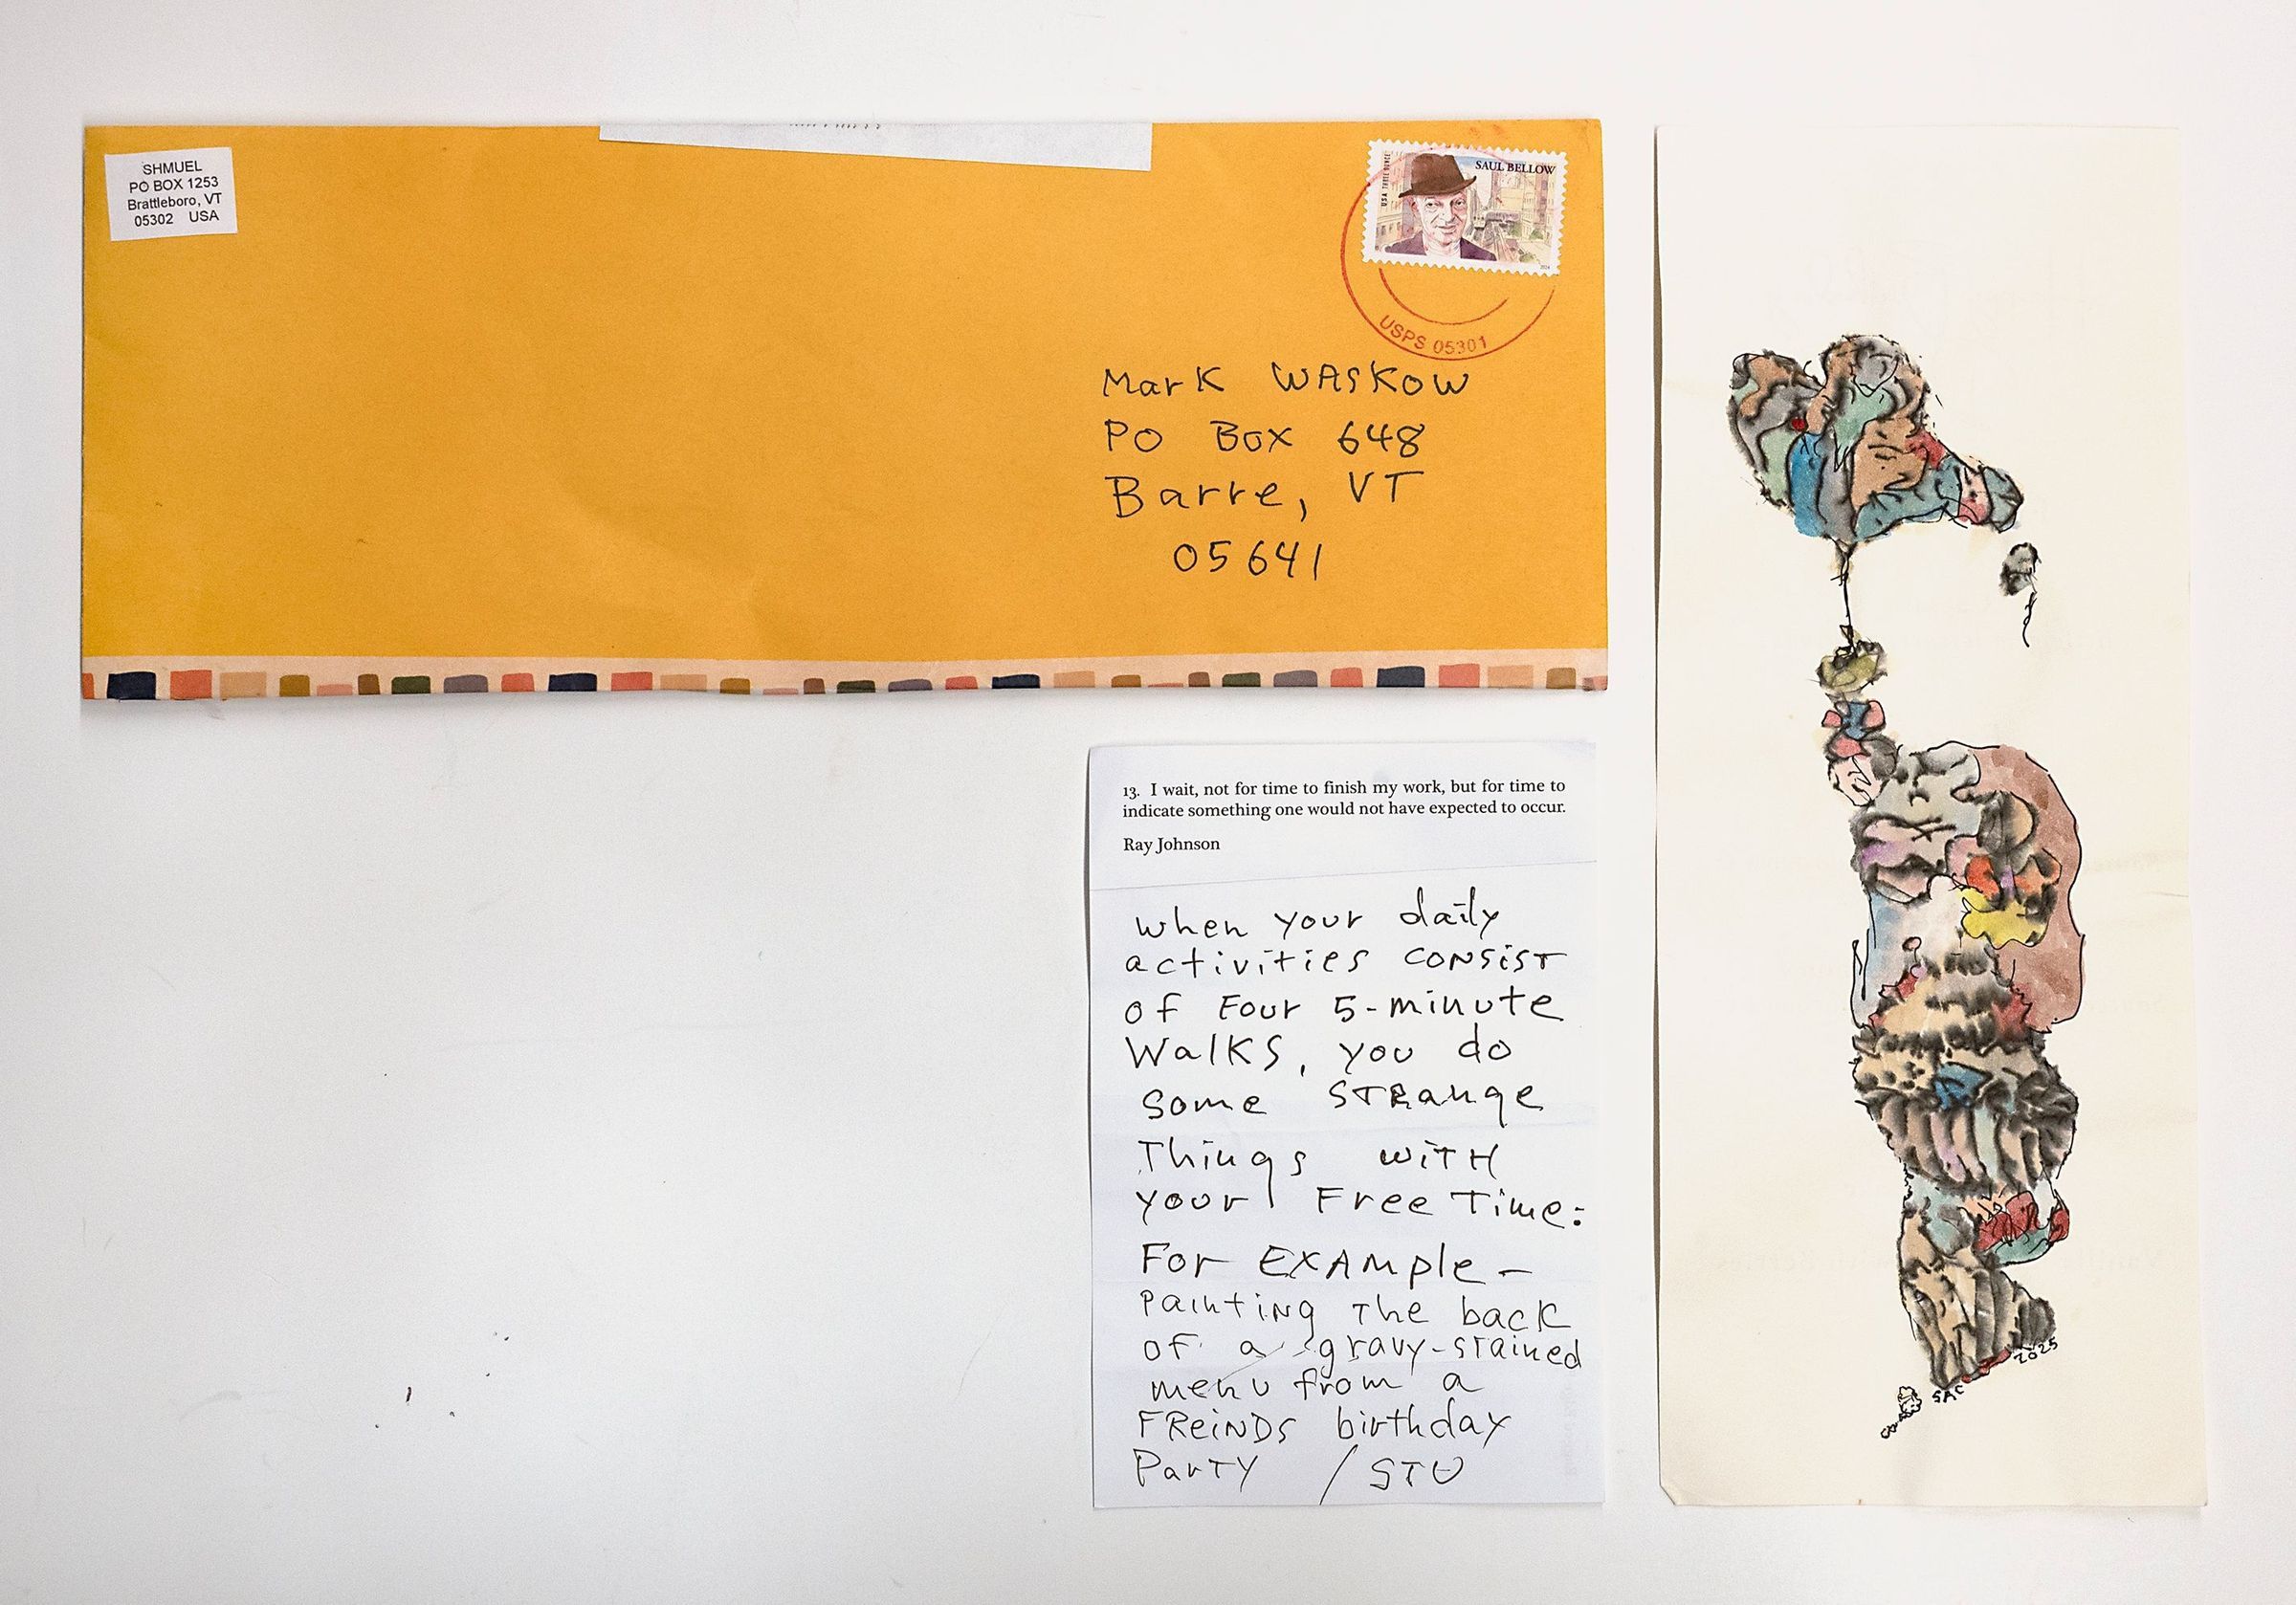 SHMUEL
PO BOX 1253
Brattleboro, VT
05302 USA
USA THREE OUNCE
SAUL BELLOW
2024
USPS 05301
Mark WASKOW
PO Box 648
Barre, VT
05641
13. I wait, not for time to finish my work, but for time to
indicate something one would not have expected to occur.
Ray Johnson
when your daily
activities CONSIST
of Four 5-minute
Walks, you do
some STRange
Things WITH
your Free Time:
For EXAMple –
Painting The back
of a gravy-stained
menu from a
FReiNDs birthday
ParTY / STU
SAC 2025